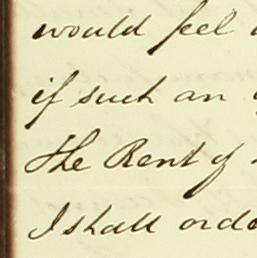 would feel
if such an
the Rent of
I shall orde